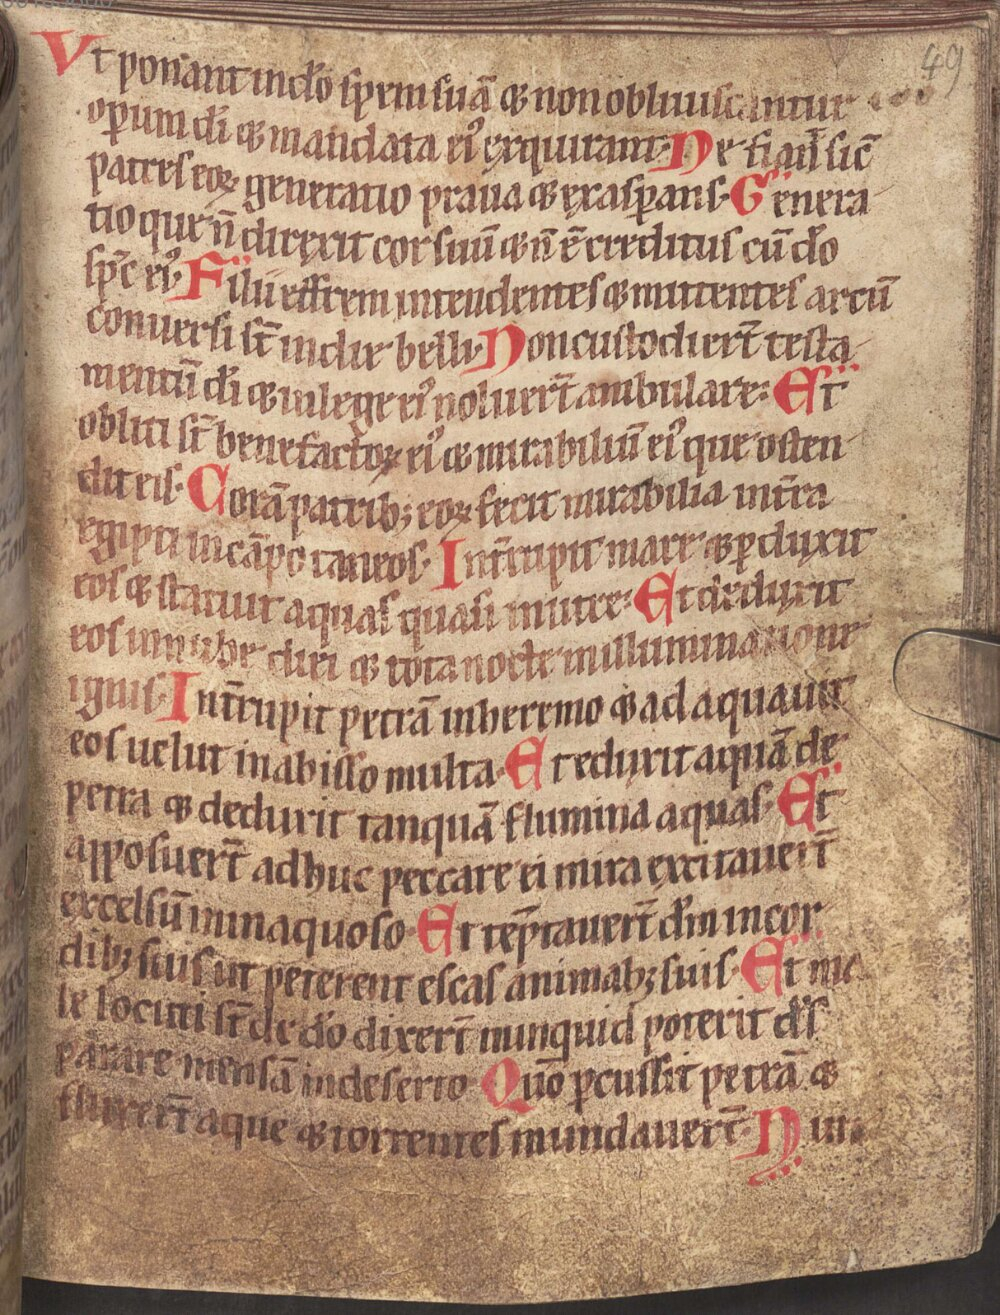 49
Vt ponant in d̄o spem suā & non obliuiscantur
oꝑum d̄i & mandata ei⁹ exquirant. Ne fiant sic̄
patres eoꝝ generatio praua & exasꝑans. Genera
tio que n̄ direxit cor suū & n̄ ē creditus cū d̄o
sp̄c ei⁹. Filii effrem intendentes & mittentes arcū
conuersi st̄ in die belli. Non custodiert̄ testa
mentū d̄i & in lege ei⁹ noluert̄ ambulare. Et
obliti st̄ benefactoꝝ ei⁹ & mirabiliū ei⁹ que osten
dit eis. Corā patrib; eoꝝ fecit mirabilia int̄ra
egipti in cāpo taneos. Int̄rupit mare & ꝑduxit
eos & statuit aquas quasi in utre. Et deduxit
eos in nube diei & tota nocte in illuminatione
ignis. Int̄rupit petrā in heremo & adaquauit
eos uelut in abisso multa. Et eduxit aquā de
petra & deduxit tanquā flumina aquas. Et
apposuert̄ adhuc peccare ei in ira excitauert̄
excelsū in inaquoso. Et tēptauert̄ d̄m in cor
dib; suis ut peterent escas animab; suis. Et ma
le locuti st̄ de d̄o dixert̄ nunquid poterit d̄s
parare mensā in deserto. Quō ꝑcussit petrā &
fluxert̄ aque & torrentes inundauert̄. Nun